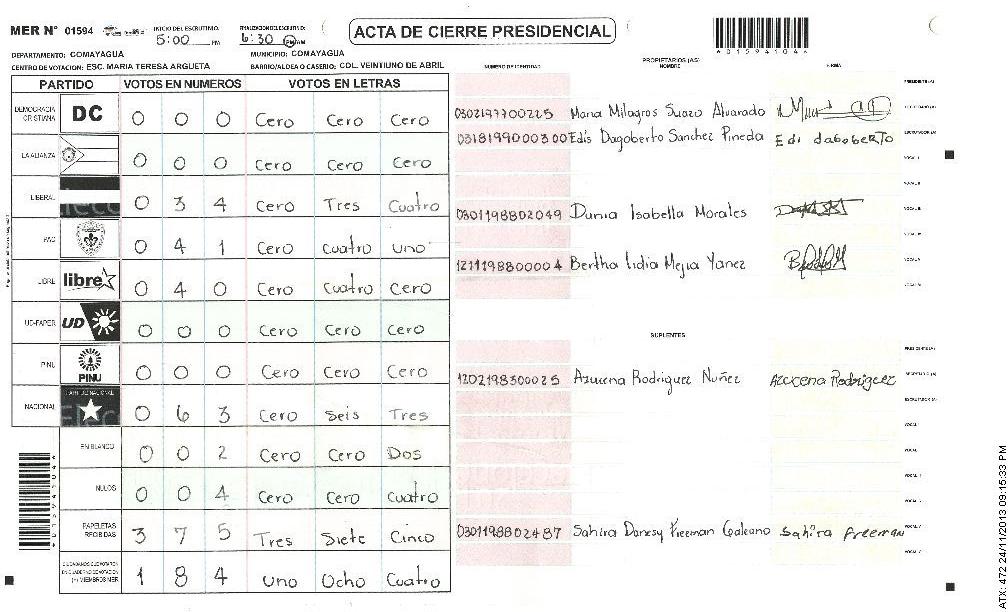 MER Nº 01594 INICIO DEL ESCRUTINIO: 5:00 PM FINALIZACION DEL ESCRUTINIO: 6:30 PM/AM
ACTA DE CIERRE PRESIDENCIAL
DEPARTAMENTO: COMAYAGUA MUNICIPIO: COMAYAGUA
CENTRO DE VOTACION: ESC. MARIA TERESA ARGUETA BARRIO/ALDEA O CASERIO: COL. VEINTIUNO DE ABRIL
PARTIDO VOTOS EN NUMEROS VOTOS EN LETRAS
DEMOCRACIA CRISTIANA DC 0 0 0 Cero Cero Cero
LA ALIANZA 0 0 0 Cero Cero Cero
LIBERAL 0 3 4 Cero Tres Cuatro
PAC 0 4 1 Cero Cuatro uno
LIBRE libre 0 4 0 Cero Cuatro Cero
UD-FAPER UD 0 0 0 Cero Cero Cero
PINU PINU 0 0 0 Cero Cero Cero
NACIONAL 0 6 3 Cero Seis Tres
EN BLANCO 0 0 2 Cero Cero Dos
NULOS 0 0 4 Cero Cero Cuatro
PAPELETAS RECIBIDAS 3 7 5 Tres Siete Cinco
CIUDADANOS QUE VOTARON
EN CUADERNO DE VOTACION
(+) MIEMBROS MER 1 8 4 uno Ocho Cuatro
A015941044
NUMERO DE IDENTIDAD PROPIETARIOS (AS) NOMBRE FIRMA
PRESIDENTE (A)
0302197700225 Maria Milagros Suazo Alvarado SECRETARIO (A)
0318199000300 Edis Dagoberto Sanchez Pineda Edi dagoberto ESCRUTADOR (A)
VOCAL I
0301198802049 Dania Isabella Morales
1211198800004 Bertha Lidia Mejia Yanez
SUPLENTES
PRESIDENTE (A)
1202198300025 Azucena Rodriguez Nuñez Azucena Rodriguez SECRETARIO (A)
ESCRUTADOR (A)
0301198802487 Sahira Danesy Freeman Galeano Sahira freeman
ATX: 472 24/11/2013 09:15:33 PM